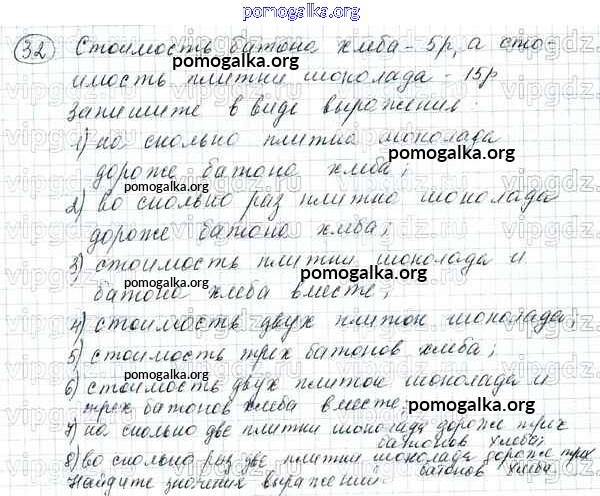 pomogalka.org
32 Стоимость батона хлеба - 5р, а сто-
pomogalka.org
имость плитки шоколада - 15р
Запишите в виде выражения:
1) на сколько плитка шоколада
pomogalka.org
дороже батона хлеба;
pomogalka.org
2) во сколько раз плитка шоколада
дороже батона хлеба;
pomogalka.org
3) стоимость плитки шоколада и
pomogalka.org
батона хлеба вместе;
4) стоимость двух плиток шоколада;
5) стоимость трех батонов хлеба;
6) стоимость двух плиток шоколада и
трех батонов хлеба вместе;
pomogalka.org
7) на сколько две плитки шоколада дороже трех
батонов хлеба;
8) во сколько раз две плитки шоколада дороже трех
батонов хлеба.
pomogalka.org
Найдите значения выражений.
pomogalka.org